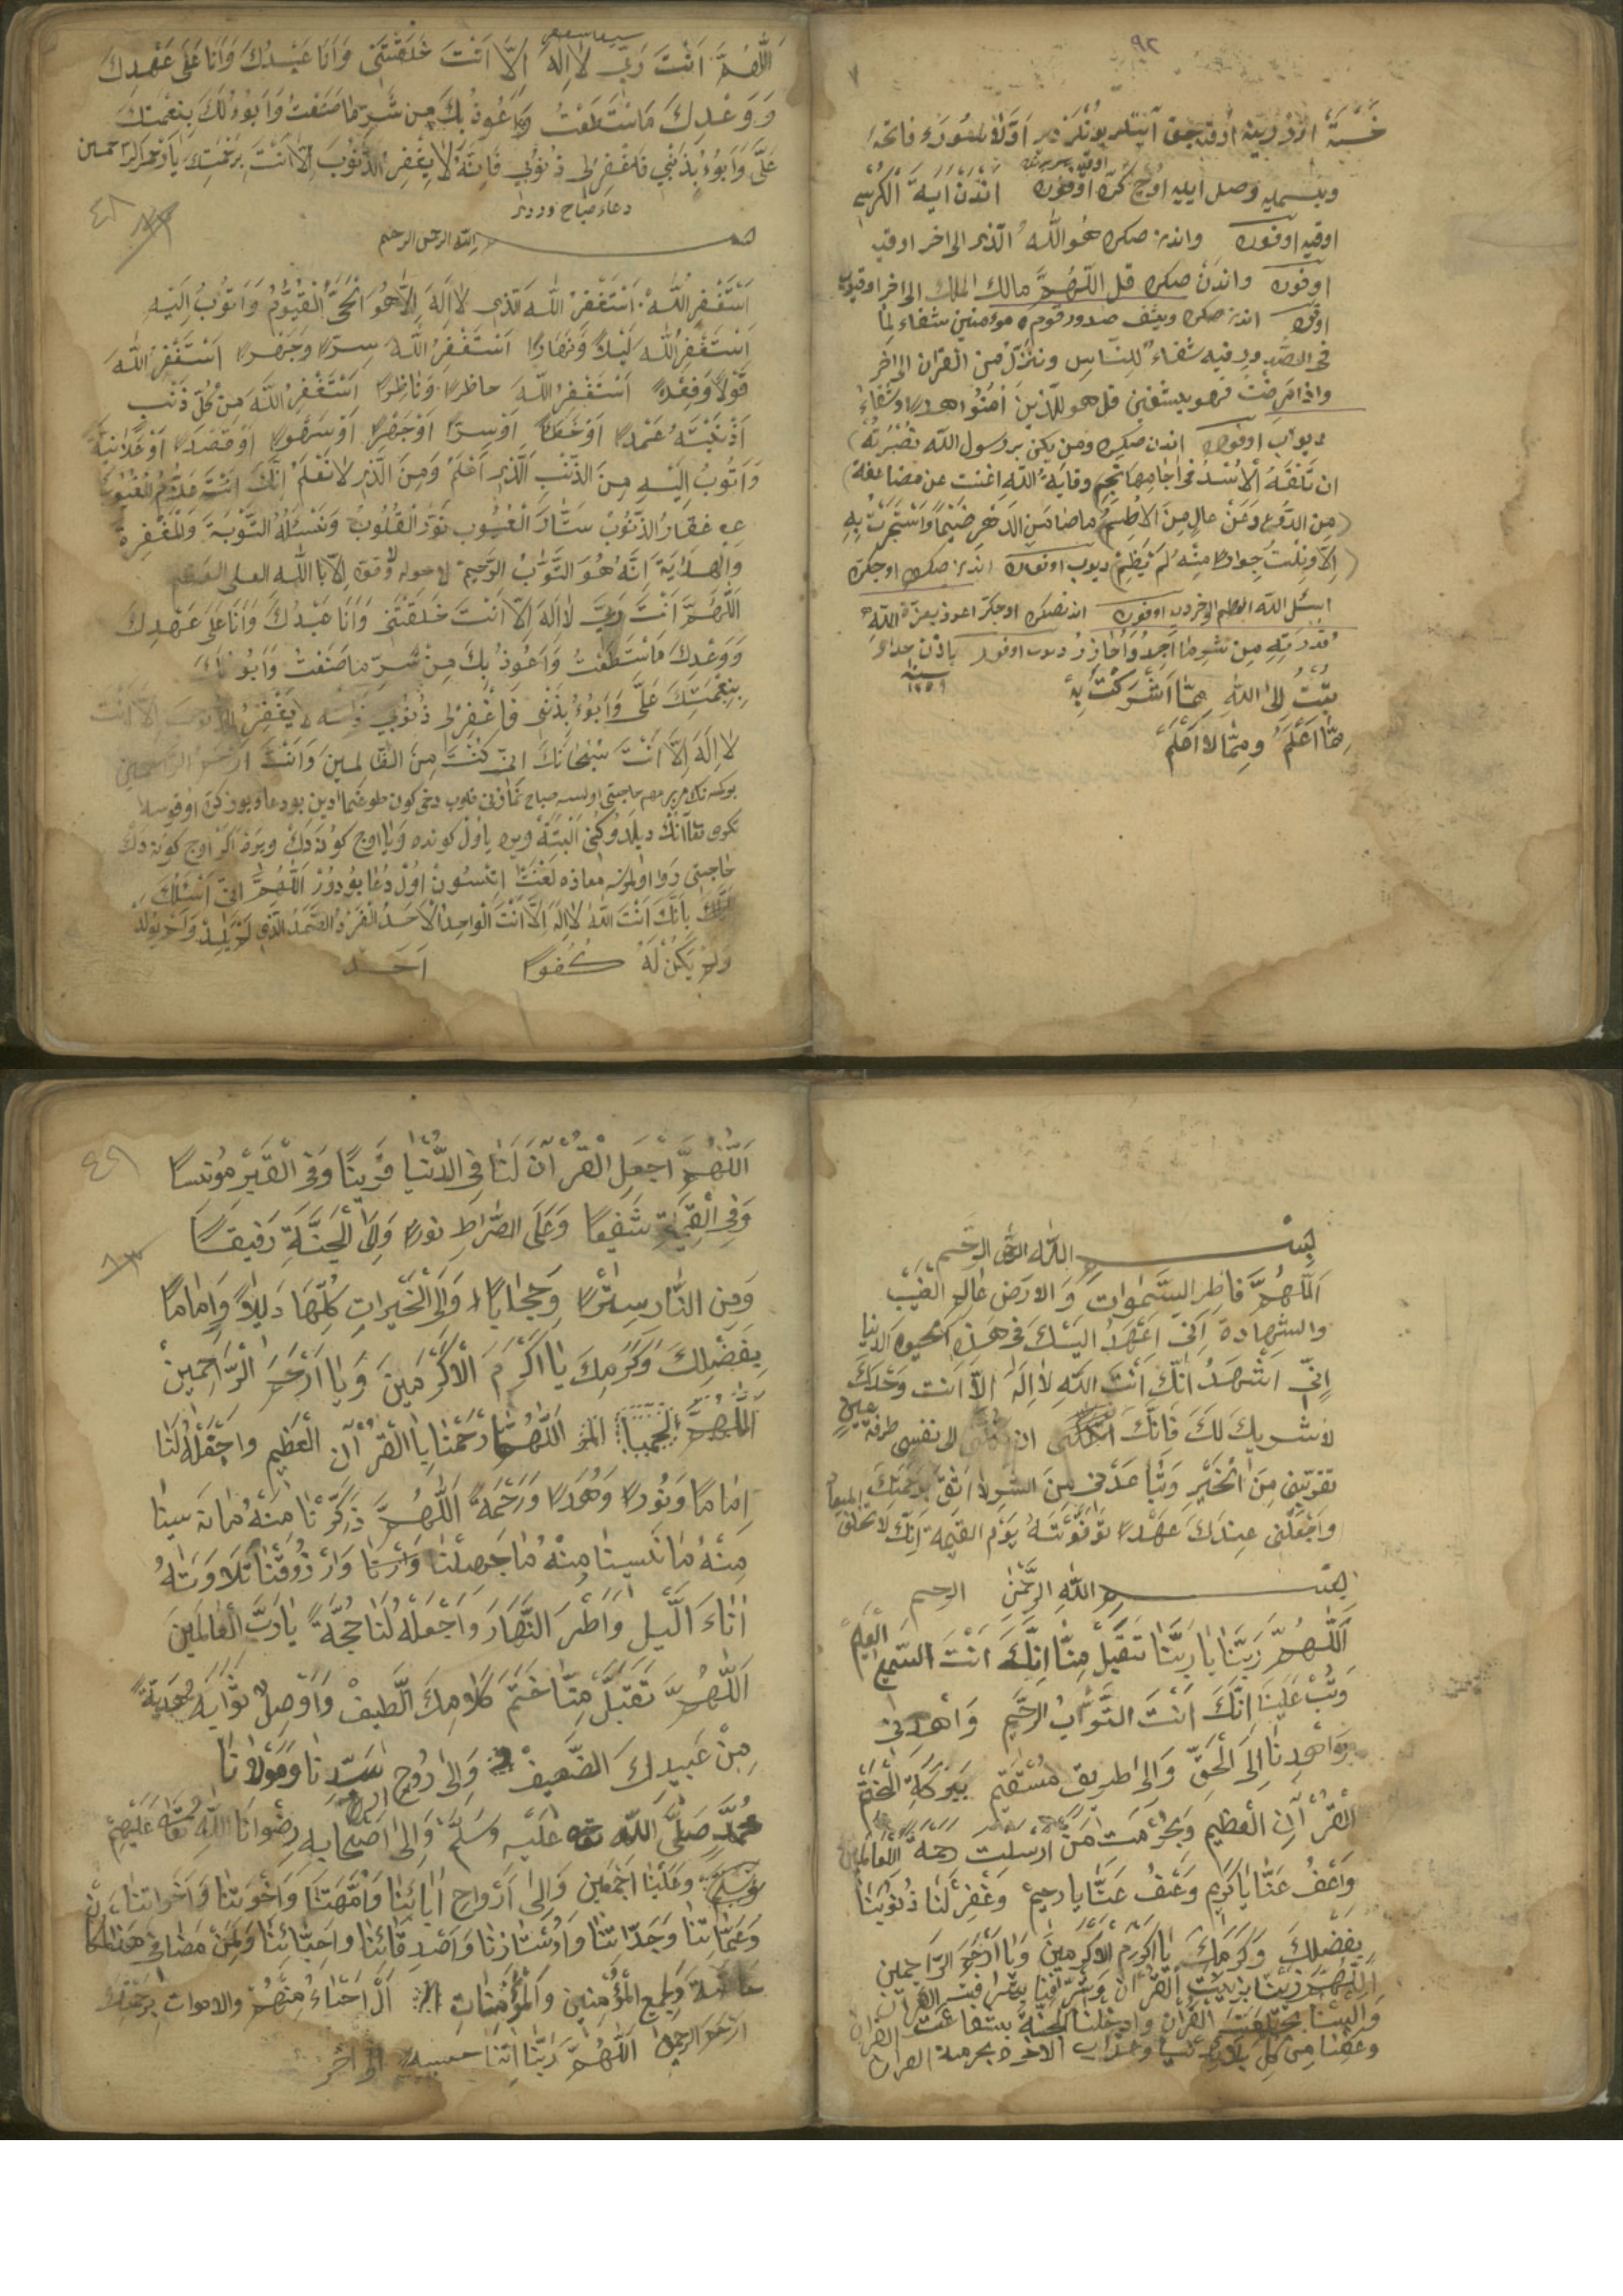 ٩٢
خسته اوزرينه اوقنه جق آيتلر بونلردر اولا بلعوذه فاتحه
وبسمليه وصل ايليه اوچ كره اوقوره اندن اية الكرسى
اوقيه اوقوره واندن صكره هو الله الذى الى اخر اوقيه
اوقوره واندن صكره قل اللهم مالك الملك الى اخر اوقيوب
اوقوره اندن صكره ويشف صدور قوم مؤمنين شفاء لما
فى الصدور فيه شفاء للناس وننزل من القران الى اخر
واذا مرضت فهو يشفين قل هو للذين آمنوا هدا وشفاء
ديوب اوقوره اندن صكره ومن يكن برسول الله نصرته
ان تلقه الاسد فى اجامها تجم وقاية الله اغنت عن مضاعفة
من الدروع وعن عال من الاطم ما ضامنى الدهر ضيما واستجرت به
الا ونلت جوارا منه لم يظم ديوب اوقوره اندن صكره اوچ كره
اسئل الله العظيم الى اخر ديه اوقوره اندن صكره اوچ كره اعوذ بعزة الله
وقدرته من شر ما اجد واحاذر ديوب اوقور باذن خدا
سنه ١٢٥٩
تبت الى الله مما اشركت به
مما اعلم ومما لا اعلم
سيد استغفار
اللهم انت ربى لا اله الا انت خلقتنى وانا عبدك وانا على عهدك
ووعدك ما استطعت واعوذ بك من شر ما صنعت وابوء لك بنعمتك
على وابوء بذنبى فاغفرلى ذنوبى فانه لا يغفر الذنوب الا انت برحمتك يا ارحم الراحمين
دعاء صباح ورددر
٤٨
بسم الله الرحمن الرحيم
استغفر الله استغفر الله الذى لا اله الا هو الحى القيوم واتوب اليه
استغفر الله ليلا ونهارا استغفر الله سرا وجهرا استغفر الله
قولا وفعلا استغفر الله حاظرا وناظرا استغفر الله من كل ذنب
اذنبته عمدا او خطا او سرا او جهرا او سهوا او قصدا او علانية
واتوب اليه من الذنب الذى اعلم ومن الذى لا نعلم انك انت علام الغيوب
غفار الذنوب ستار العيوب نور القلوب ونسئله التوبة والمغفرة
والهداية انه هو التواب الرحيم لا حول ولا قوة الا بالله العلى العظيم
اللهم انت ربى لا اله الا انت خلقتنى وانا عبدك وانا على عهدك
ووعدك ما استطعت واعوذ بك من شر ما صنعت وابوء لك
بنعمتك على وابوء بذنبى فاغفرلى ذنوبى فانه لا يغفر الذنوب الا انت
لا اله الا انت سبحانك انى كنت من الظالمين وانت ارحم الراحمين
بر كمسنه نك بر مهم حاجتى اولسه صباح نمازنى قلوب دخى كون طوغمادين بو دعاء يوز كره اوقوسه
تكرى تعالانك ديلدوكنى البته ويره يا اول كونده ويا اوچ كونه دك ويره اكر اوچ كونه دك
حاجتى روا اولمزسه معاذه لعنت ايتسون اول دعا بودور اللهم انى اسئلك
بانك انت الله لا اله الا انت الواحد الاحد الفرد الصمد الذى لم يلد ولم يولد
ولم يكن له كفوا احد
بسم الله الرحمن الرحيم
اللهم فاطر السموات والارض عالم الغيب
والشهادة انى اعهد اليك فى هذه الحيوة الدنيا
انى اشهد انك انت الله لا اله الا انت وحدك
لا شريك لك فانك ان تكلنى الى نفسى طرفة عين
تقربنى من الخير وتباعدنى من الشر لا اثق برحمتك
واجعلنى عندك عهدا توفونته يوم القيمة انك لا تخلف الميعاد
بسم الله الرحمن الرحيم
اللهم ربنا يا ربنا تقبل منا انك انت السميع العليم
وتب علينا انك انت التواب الرحيم واهدنى
واهدنا الى الحق والى طريق مستقيم ببركة الختم
القرآن العظيم وبحرمت من ارسلت رحمة للعالمين
واعف عنا يا كريم وعف عنا يا رحيم وغفر لنا ذنوبنا
بفضلك وكرمك يا اكرم الاكرمين ويا ارحم الراحمين
اللهم زينا بزينت القرآن وشرفنا بشرافت القرآن
والبسنا بخلعت القرآن وادخلنا الجنة بشفاعت القرآن
وعافنا من كل بلاء الدنيا وعذاب الاخره بحرمة القرآن
٤٩
اللهم اجعل القرآن لنا فى الدنيا قرينا وفى القبر مونسا
وفى القيمة شفيعا وعلى الصراط نورا والى الجنة رفيقا
ومن النار سترا وحجابا والى الخيرات كلها دليلا واماما
بفضلك وكرمك يا اكرم الاكرمين ويا ارحم الراحمين
اللهم ارحمنا بالقرآن العظيم واجعله لنا
اماما ونورا وهدا ورحمة اللهم ذكرنا منه ما نسينا
منه ما نسينا منه ما جهلنا وارزوقنا تلاوته
اناء الليل واطر النهار واجعله لنا حجة يا رب العالمين
اللهم تقبل منا ختم كلامك الطيف واوصل ثوابه هدية
من عبيدك الضعيف والى روح سيدنا ومولانا
محمد صلى الله تعه عليه وسلم والى اصحابه رضوانا الله تعه عليهم
وعلينا اجمعين والى ارواح ابائنا وامهاتنا واخوتنا واخواتنا
وعماتنا وجداتنا واوستازنا واصدقائنا واحبائنا
عامة ولجميع المؤمنين والمؤمنات ال احياء منهم والاموات برحمتك
ارحم الراحمين اللهم ربنا اتنا حسنة الى اخر